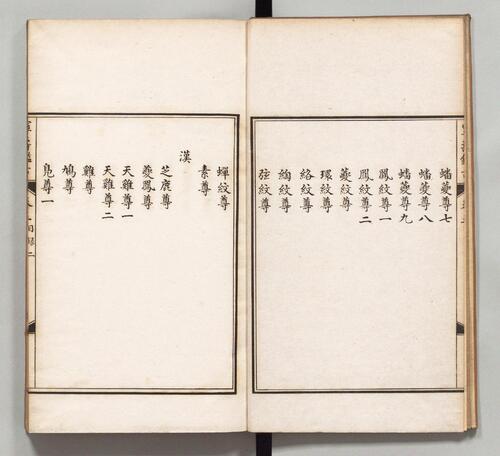 蟠夔尊七
蟠夔尊八
蟠夔尊九
鳳紋尊一
鳳紋尊二
夔紋尊
環紋尊
絡紋尊
綯紋尊
弦紋尊
蟬紋尊
素尊
漢
芝鹿尊
夔鳳尊
天雞尊一
天雞尊二
雞尊
鳩尊
鳧尊一